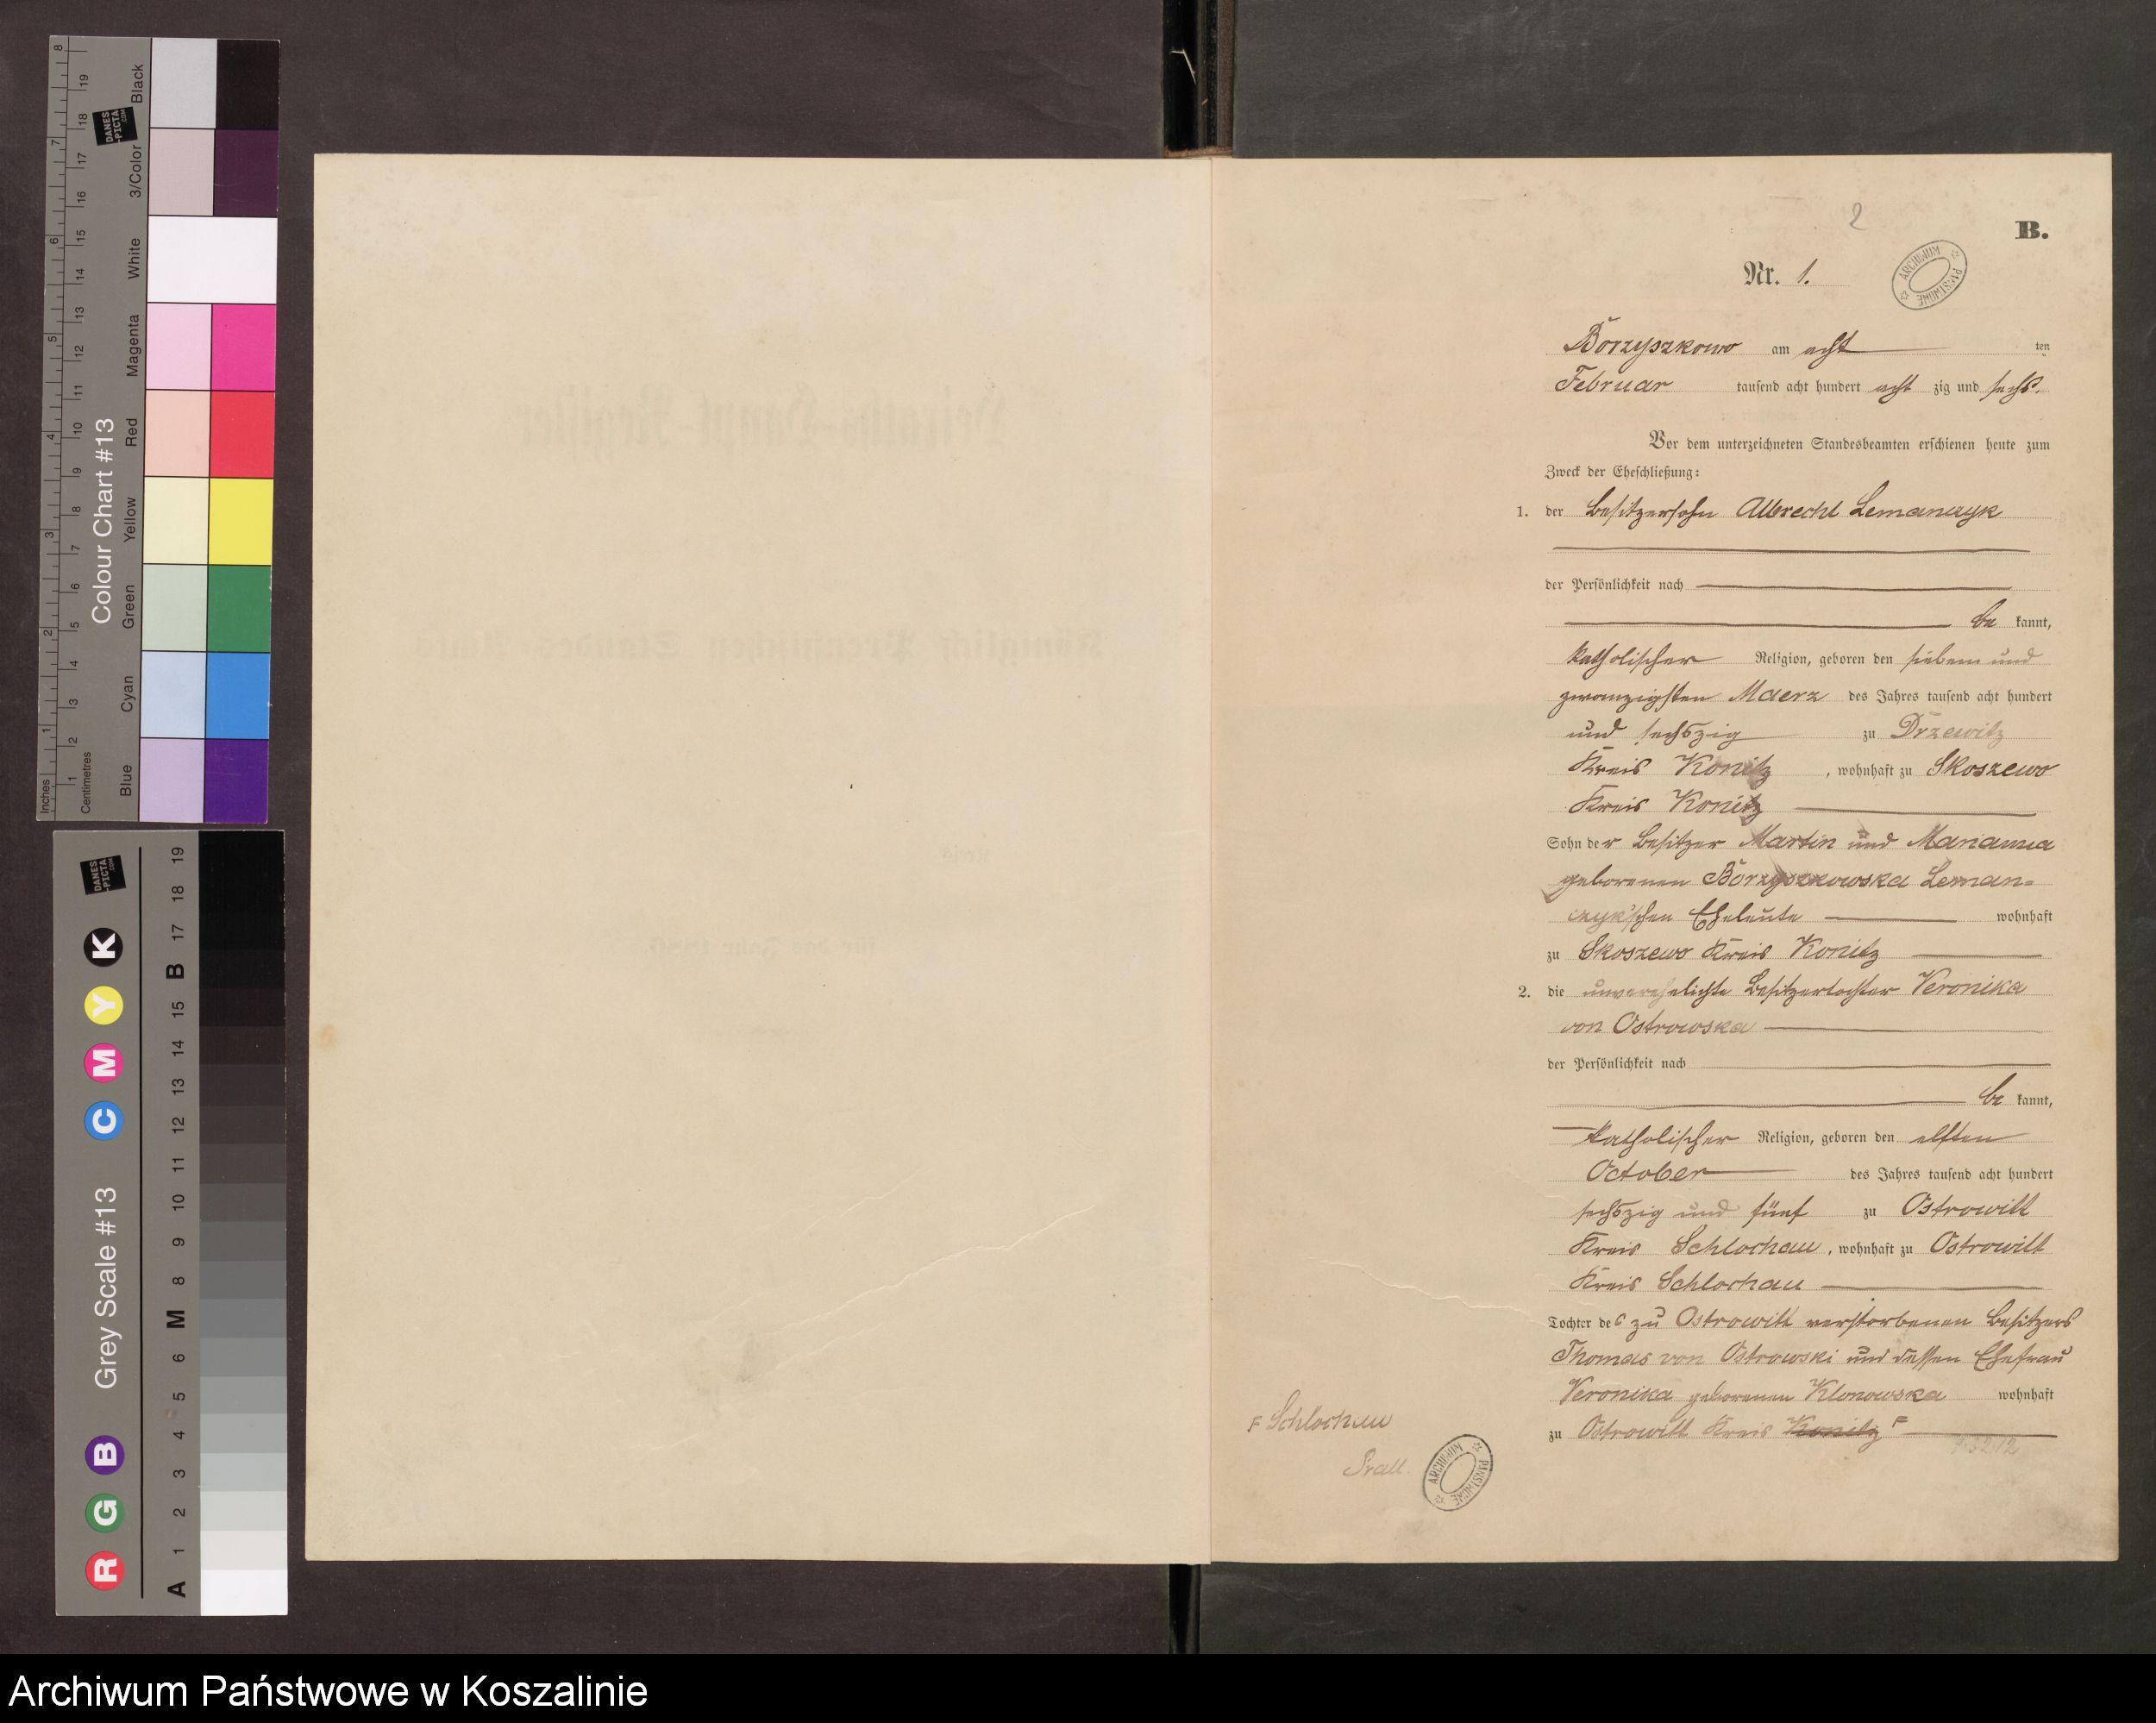 2
B.
Nr. 1.
ARCHIWUM PAŃSTWOWE
Borzyszkowo am acht ten
Februar tausend acht hundert acht zig und sechs.
Vor dem unterzeichneten Standesbeamten erschienen heute zum
Zweck der Eheschließung:
1. der Besitzersohn Albrecht Lemanczyk
der Persönlichkeit nach
be kannt,
katholischer Religion, geboren den sieben und
zwanzigsten Maerz des Jahres tausend acht hundert
und sechszig zu Drzewitz
Kreis Konitz, wohnhaft zu Skoszewo
Kreis Konitz
Sohn der Besitzer Martin und Marianna
geborenen Borzyszkowska Leman-
czyk'schen Eheleute wohnhaft
zu Skoszewo Kreis Konitz
2. die unverehelichte Besitzertochter Veronika
von Ostrowska
der Persönlichkeit nach
be kannt,
katholischer Religion, geboren den elften
October des Jahres tausend acht hundert
sechszig und fünf zu Ostrowitt
Kreis Schlochau, wohnhaft zu Ostrowitt
Kreis Schlochau
Tochter des zu Ostrowitt verstorbenen Besitzers
Thomas von Ostrowski und dessen Ehefrau
Veronika geborenen Klonowska wohnhaft
zu Ostrowitt Kreis Konitz F
F Schlochau
ARCHIWUM PAŃSTWOWE
Inches 1 2 3 4 5 6 7 8
Centimetres 1 2 3 4 5 6 7 8 9 10 11 12 13 14 15 16 17 18 19
Colour Chart #13
Blue Cyan Green Yellow Red Magenta White 3/Color Black
DANES-PICTA.COM
Grey Scale #13
R G B C M Y K
A 1 2 3 4 5 6 M 8 9 10 11 12 13 14 15 B 17 18 19
DANES-PICTA.COM
Archiwum Państwowe w Koszalinie